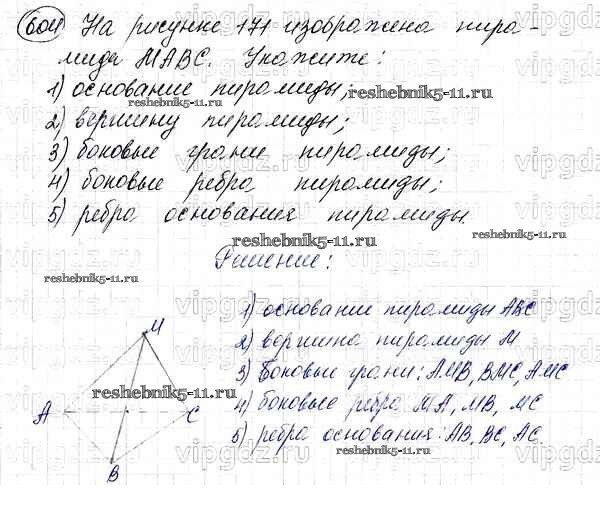 604 На рисунке 171 изображена пира-
мида МАВС. Укажите:
1) основание пирамиды;
reshebnik5-11.ru
reshebnik5-11.ru
2) вершину пирамиды;
3) боковые грани пирамиды;
4) боковые ребра пирамиды;
5) ребра основания пирамиды.
reshebnik5-11.ru
reshebnik5-11.ru
Решение:
reshebnik5-11.ru
1) основание пирамиды АВС
2) вершина пирамиды М
3) боковые грани: АМВ, ВМС, АМС
4) боковые ребра МА, МВ, МС
5) ребра основания: АВ, ВС, АС.
reshebnik5-11.ru
М
reshebnik5-11.ru
А
С
В
vipgdz.ru